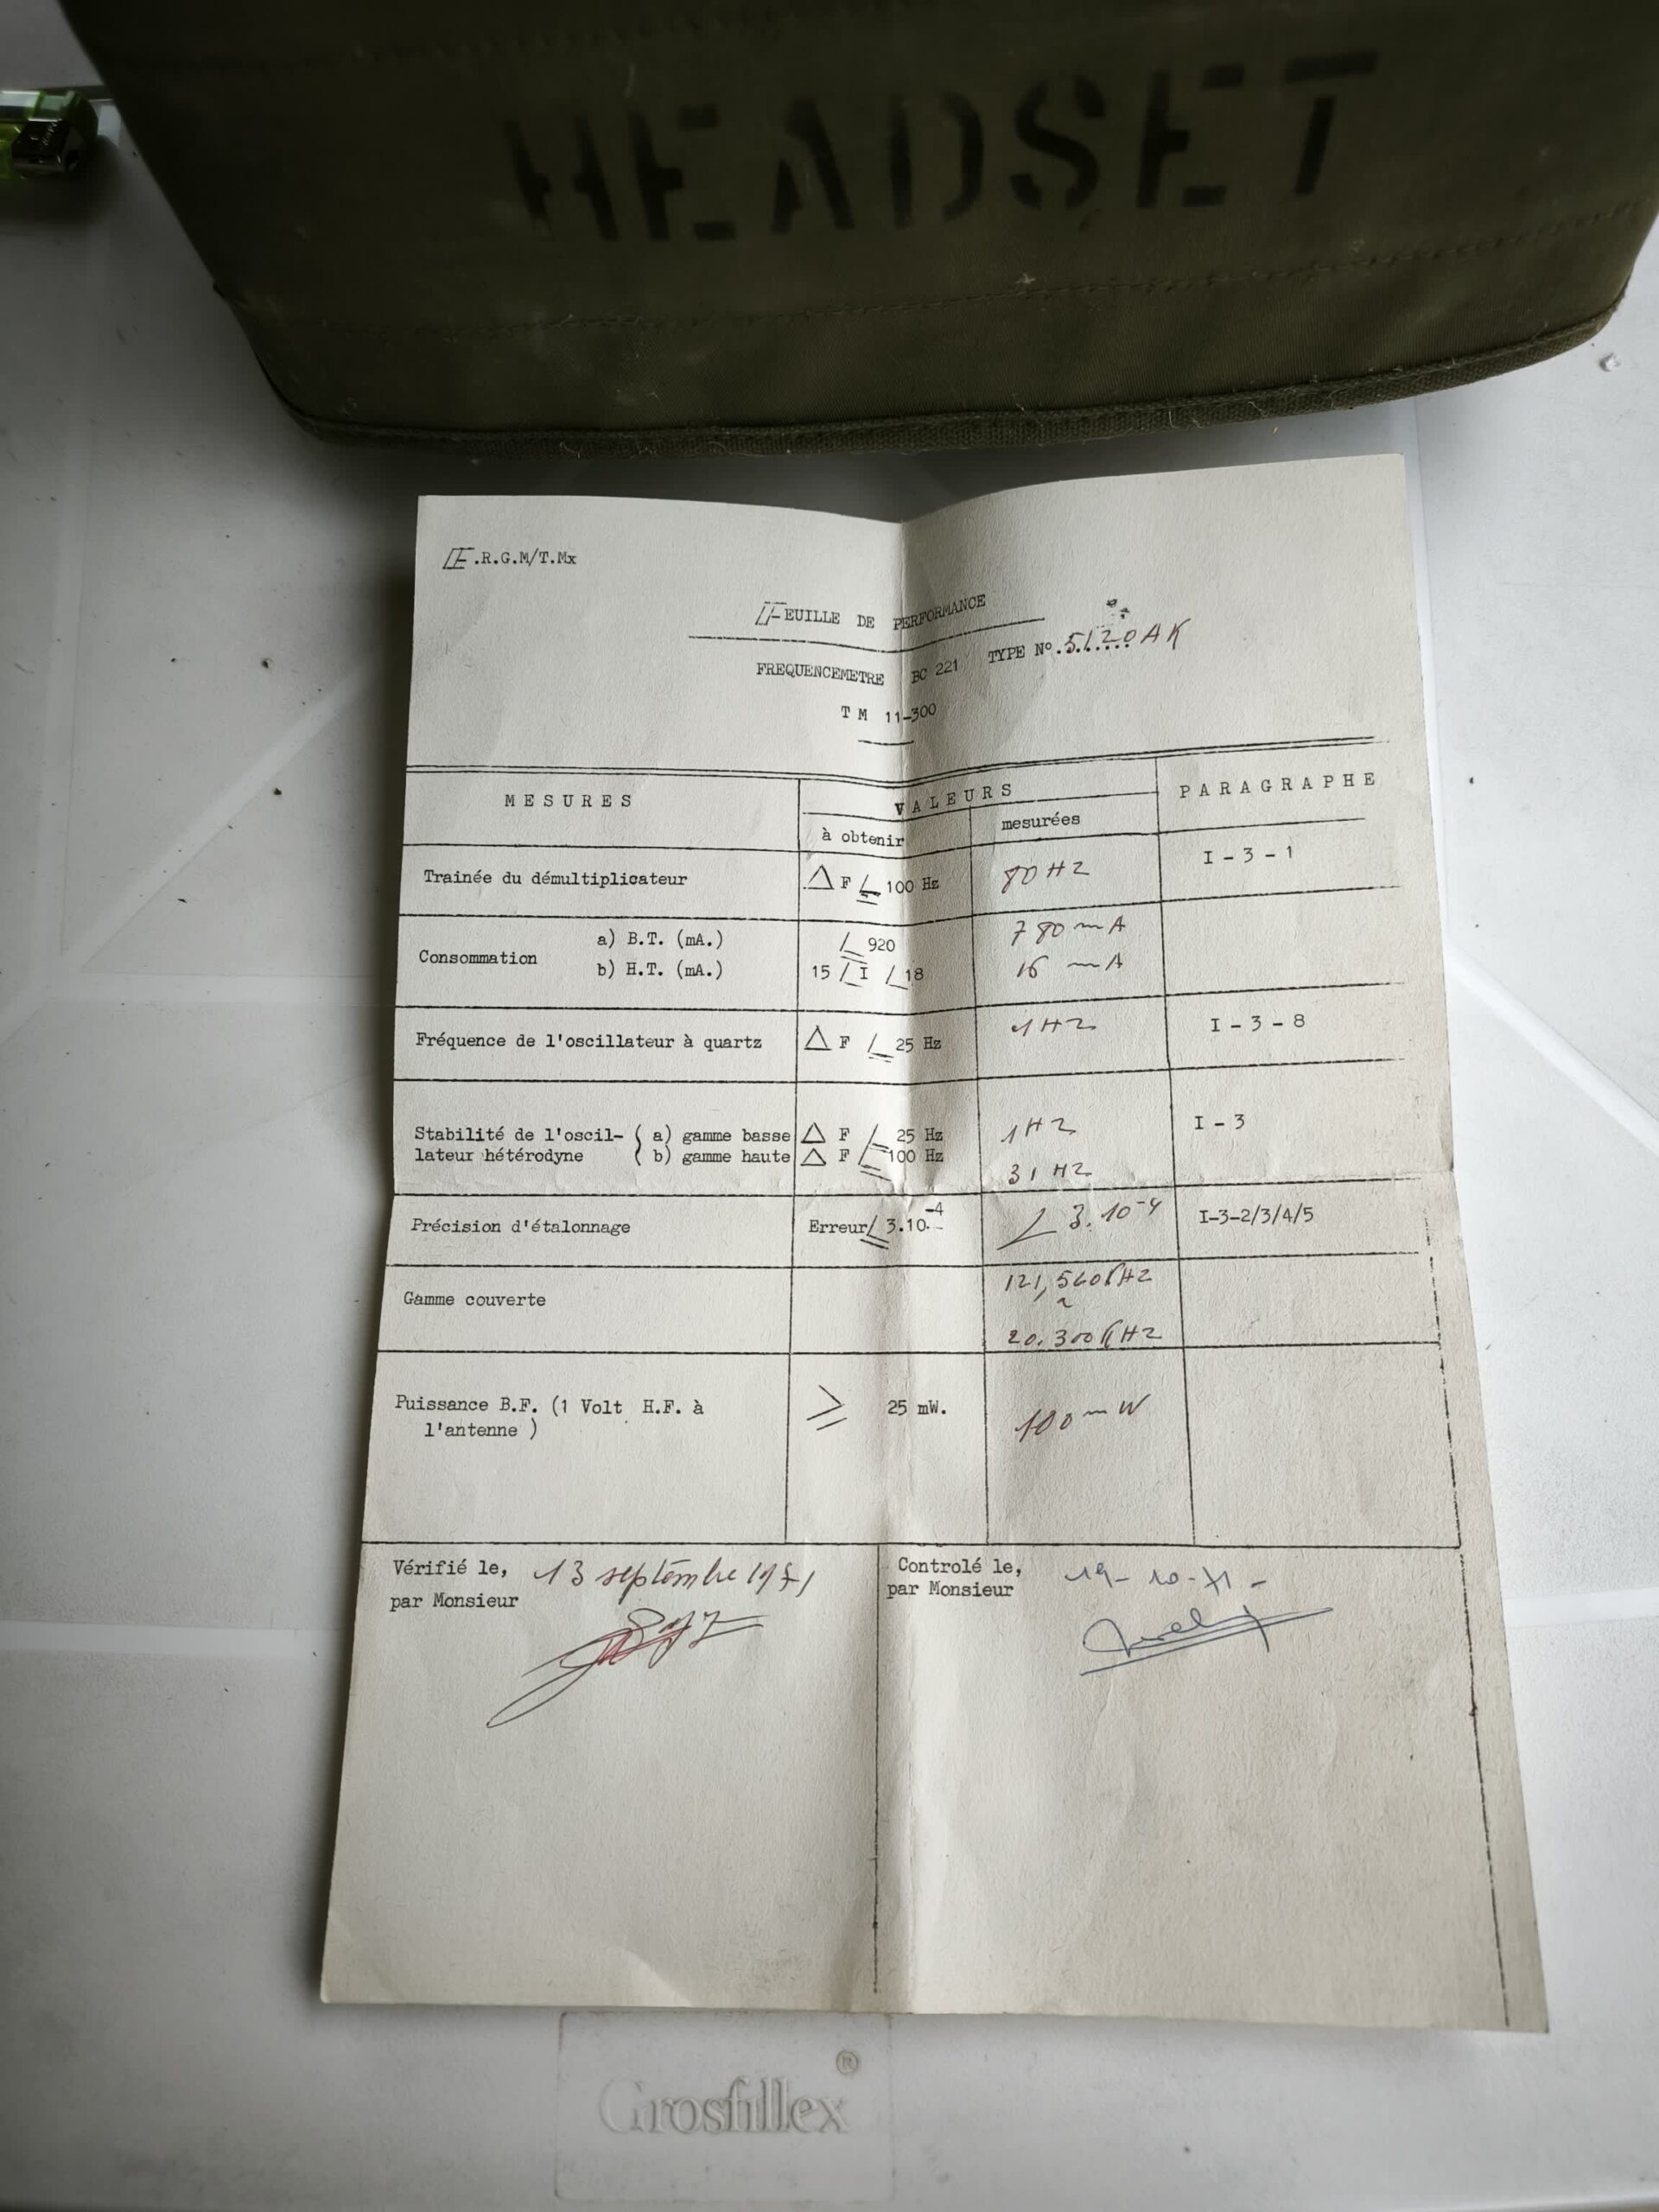 HEADSET
E.R.G.M/T.Mx
FEUILLE DE PERFORMANCE
FREQUENCEMETRE BC 221 TYPE N° 5120AK
T M 11-300
MESURES VALEURS PARAGRAPHE
à obtenir mesurées
Trainée du démultiplicateur △ F ≤ 100 Hz 80 HZ I - 3 - 1
Consommation a) B.T. (mA.) ≤ 920 780 mA
b) H.T. (mA.) 15 ≤ I ≤ 18 16 mA
Fréquence de l'oscillateur à quartz △ F ≤ 25 Hz 1HZ I - 3 - 8
Stabilité de l'oscil- ( a) gamme basse △ F ≤ 25 Hz 1HZ I - 3
lateur hétérodyne ( b) gamme haute △ F ≤ 100 Hz 31 HZ
Précision d'étalonnage Erreur ≤ 3.10-4 ∠ 3.10-4 I-3-2/3/4/5
Gamme couverte 121,560KHZ
~
20.300KHZ
Puissance B.F. (1 Volt H.F. à ≥ 25 mW. 100 mW
l'antenne )
Vérifié le, 13 septembre 1971 Controlé le, 19-10-71-
par Monsieur par Monsieur
Grosfillex ®